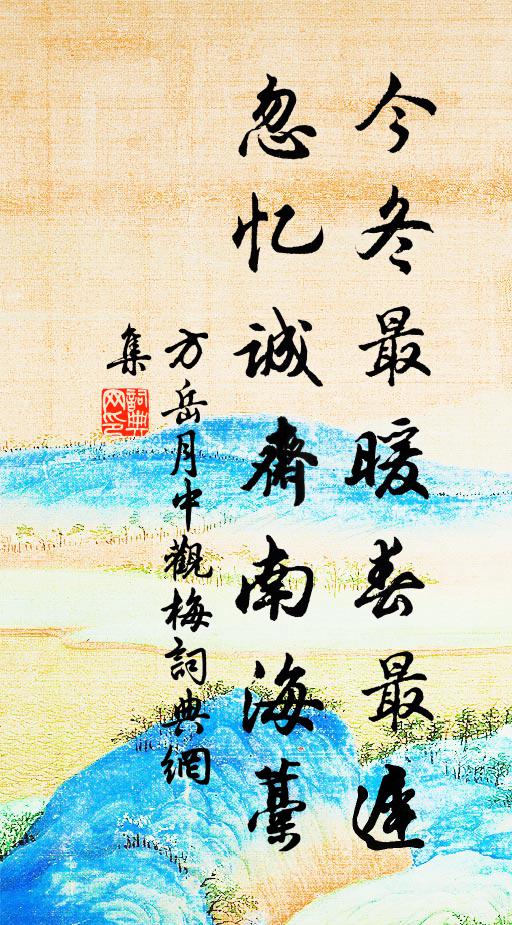 今冬最暖春最遲
忽忆誠齋南海藁
方岳月中觀梅詞典網
集
詞典
网印